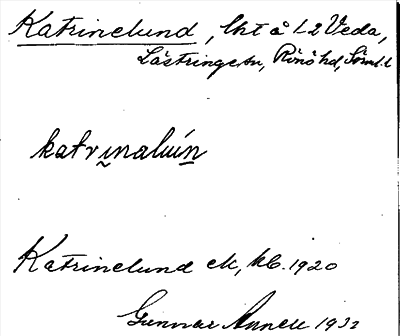 Katrinelund, lht å 1 2 Veda,
Lästringe sn, Rönö hd, Söml. l
katrinaluin
Katrinelund ek, kb. 1920
Gunnar Annell 1932